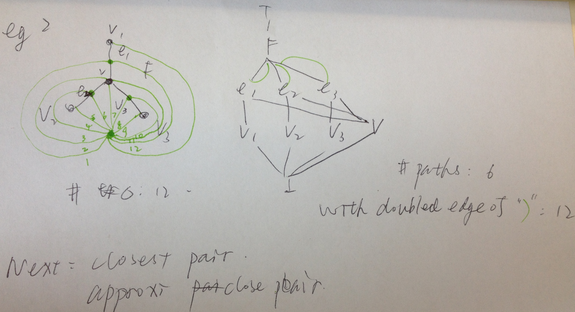 eg 2
V1
e1
F
v
e2
V3
V2
V3
6 7 8
5 9
4 10
3 11
2 12
1
# 0: 12
T
F
e1 e2 e3
V1 V2 V3 V
I
# paths: 6
with doubled edge of ")": 12
Next: closest pair.
approxi close pair.